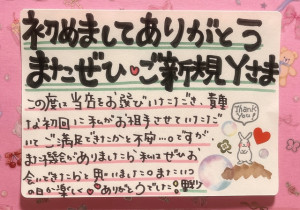 初めましてありがとう
またぜひ♥ご新規Yさま
この度は当店をお選びいただき、貴重
な初回に私がお相手させていただいて
いてご満足できたかと不安...。ですが
また機会がありましたら私はぜひお
会いできたらと思いました。また
の日が楽しく ありがとうでした!
Thank you!